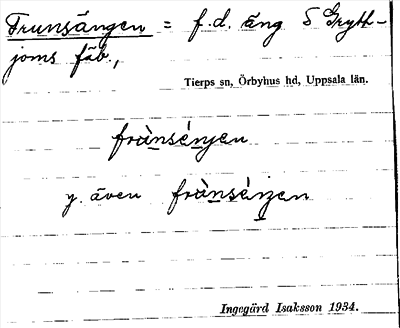 Frunsängen = f.d. äng S Grytt-
joms fäb.,
Tierps sn, Örbyhus hd, Uppsala län.
frùnséŋen
y. även frùnsèŋen
Ingegärd Isaksson 1934.